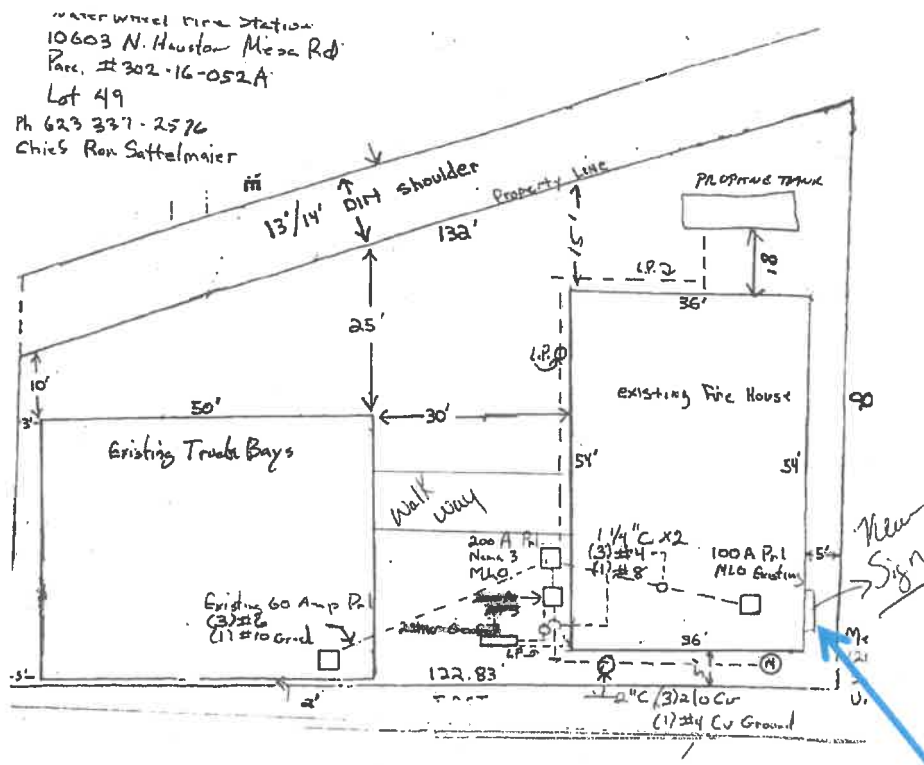 Water Wheel Fire Station
10603 N. Houston Mesa Rd
Parc. #302-16-052A
Lot 49
Ph 623 337-2576
Chief Ron Sattelmaier
13'/14' Dirt shoulder
Property Line
132'
15'
PROPANE TANK
18
L.P.
36'
25'
L.P.
10'
50'
30'
existing Fire House
90
3'
Existing Truck Bays
54'
54'
Walk
way
New
Sign
200 A Pnl
Nema 3
MLO
1 1/4"C x2
(3) #4
(1) #8
100A Pnl
MLO Existing
5'
Existing 60 Amp Pnl
(3) #6
(1) #10 Grnd
L.P.
36'
122.83'
2'
2"C (3) 2/0 Cu
(1) #4 Cu Ground